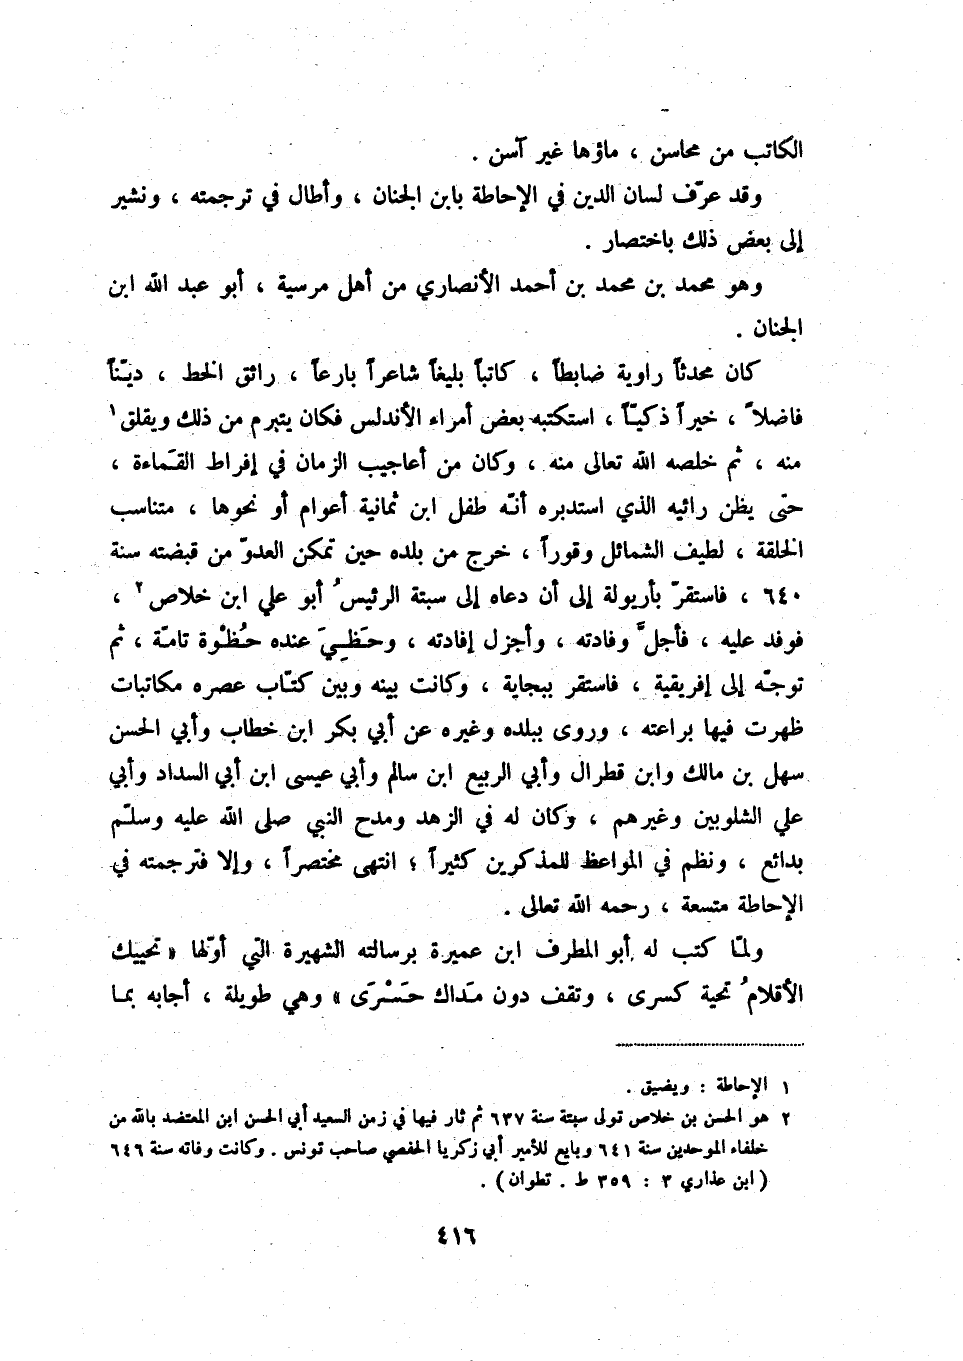 الكاتب من محاسن ، ماؤها غير آسن .
وقد عرّف لسان الدين في الإحاطة بابن الجنان ، وأطال في ترجمته ، ونشير
إلى بعض ذلك باختصار .
وهو محمد بن محمد بن أحمد الأنصاري من أهل مرسية ، أبو عبد الله ابن
الجنان .
كان محدثاً راوية ضابطاً ، كاتباً بليغاً شاعراً بارعاً ، رائق الخط ، ديّناً
فاضلاً ، خيراً ذكيّاً ، استكتبه بعض أمراء الأندلس فكان يتبرم من ذلك ويقلق١
منه ، ثم خلصه الله تعالى منه ، وكان من أعاجيب الزمان في إفراط القَماءة ،
حتّى يظن رائيه الذي استدبره أنّه طفل ابن ثمانية أعوام أو نحوها ، متناسب
الخلقة ، لطيف الشمائل وقوراً ، خرج من بلده حين تمكن العدوّ من قبضته سنة
٦٤٠ ، فاستقرّ بأريولة إلى أن دعاه إلى سبتة الرئيسُ أبو علي ابن خلاص٢ ،
فوفد عليه ، فأجلَّ وفادته ، وأجزل إفادته ، وحَظِيَ عنده حُظْوة تامّة ، ثم
توجّه إلى إفريقية ، فاستقر ببجاية ، وكانت بينه وبين كتّاب عصره مكاتبات
ظهرت فيها براعته ، وروى ببلده وغيره عن أبي بكر ابن خطاب وأبي الحسن
سهل بن مالك وابن قطرال وأبي الربيع ابن سالم وأبي عيسى ابن أبي السداد وأبي
علي الشلوبين وغيرهم ، وكان له في الزهد ومدح النبي صلى الله عليه وسلّم
بدائع ، ونظم في المواعظ للمذكرين كثيراً ؛ انتهى مختصراً ، وإلا فترجمته في
الإحاطة متسعة ، رحمه الله تعالى .
ولمّا كتب له أبو المطرف ابن عميرة برسالته الشهيرة التي أوّلها « تحييك
الأقلامُ تحية كسرى ، وتقف دون مَداك حَسْرَى » وهي طويلة ، أجابه بما
١ الإحاطة : ويضيق .
٢ هو الحسن بن خلاص تولى سبتة سنة ٦٣٧ ثم ثار فيها في زمن السعيد أبي الحسن ابن المعتضد بالله من
خلفاء الموحدين سنة ٦٤١ وبايع للأمير أبي زكريا الحفصي صاحب تونس . وكانت وفاته سنة ٦٤٦
( ابن عذاري ٣ : ٣٥٩ ط . تطوان ) .
٤١٦